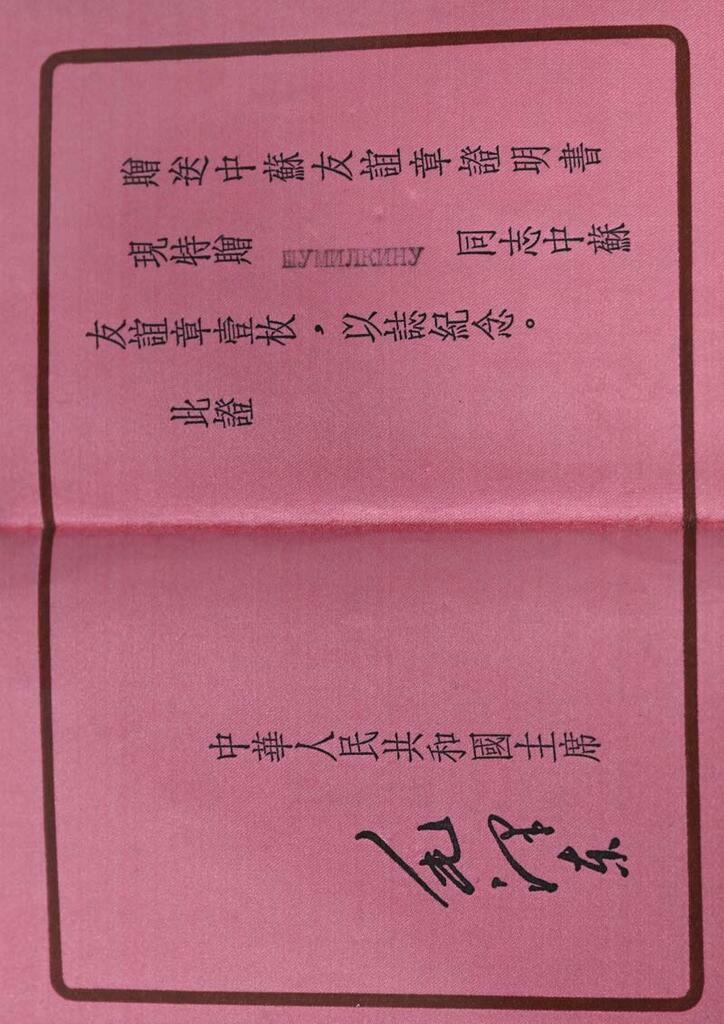 贈送中蘇友誼章證明書
現特贈 ШУМИЛКИНУ 同志中蘇
友誼章壹枚，以誌紀念。
此證
中華人民共和國主席
毛澤东